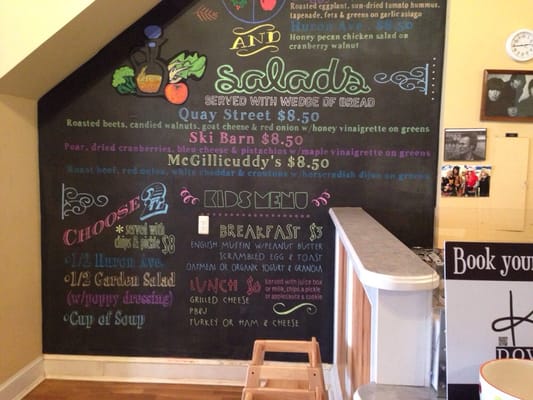 Roasted eggplant, sun-dried tomato hummus,
tapenade, feta & greens on garlic asiago
Huron Ave. $8.50
Honey pecan chicken salad on
cranberry walnut
AND
salads
SERVED WITH WEDGE OF BREAD
Quay Street $8.50
Roasted beets, candied walnuts, goat cheese & red onion w/honey vinaigrette on greens
Ski Barn $8.50
Pear, dried cranberries, bleu cheese & pistachios w/maple vinaigrette on greens
McGillicuddy's $8.50
Roast beef, red onion, white cheddar & croutons w/horseradish dijon on greens
CHOOSE 2
*served with
chips & pickle $8
1/2 Huron Ave.
1/2 Garden Salad
(w/poppy dressing)
Cup of Soup
KIDS MENU
BREAKFAST $3
ENGLISH MUFFIN W/PEANUT BUTTER
SCRAMBLED EGG & TOAST
OATMEAL OR ORGANIC YOGURT & GRANOLA
LUNCH
Served with juice box
or milk, chips & pickle
or applesauce & cookie
GRILLED CHEESE
PB&J
TURKEY OR HAM & CHEESE
Book your